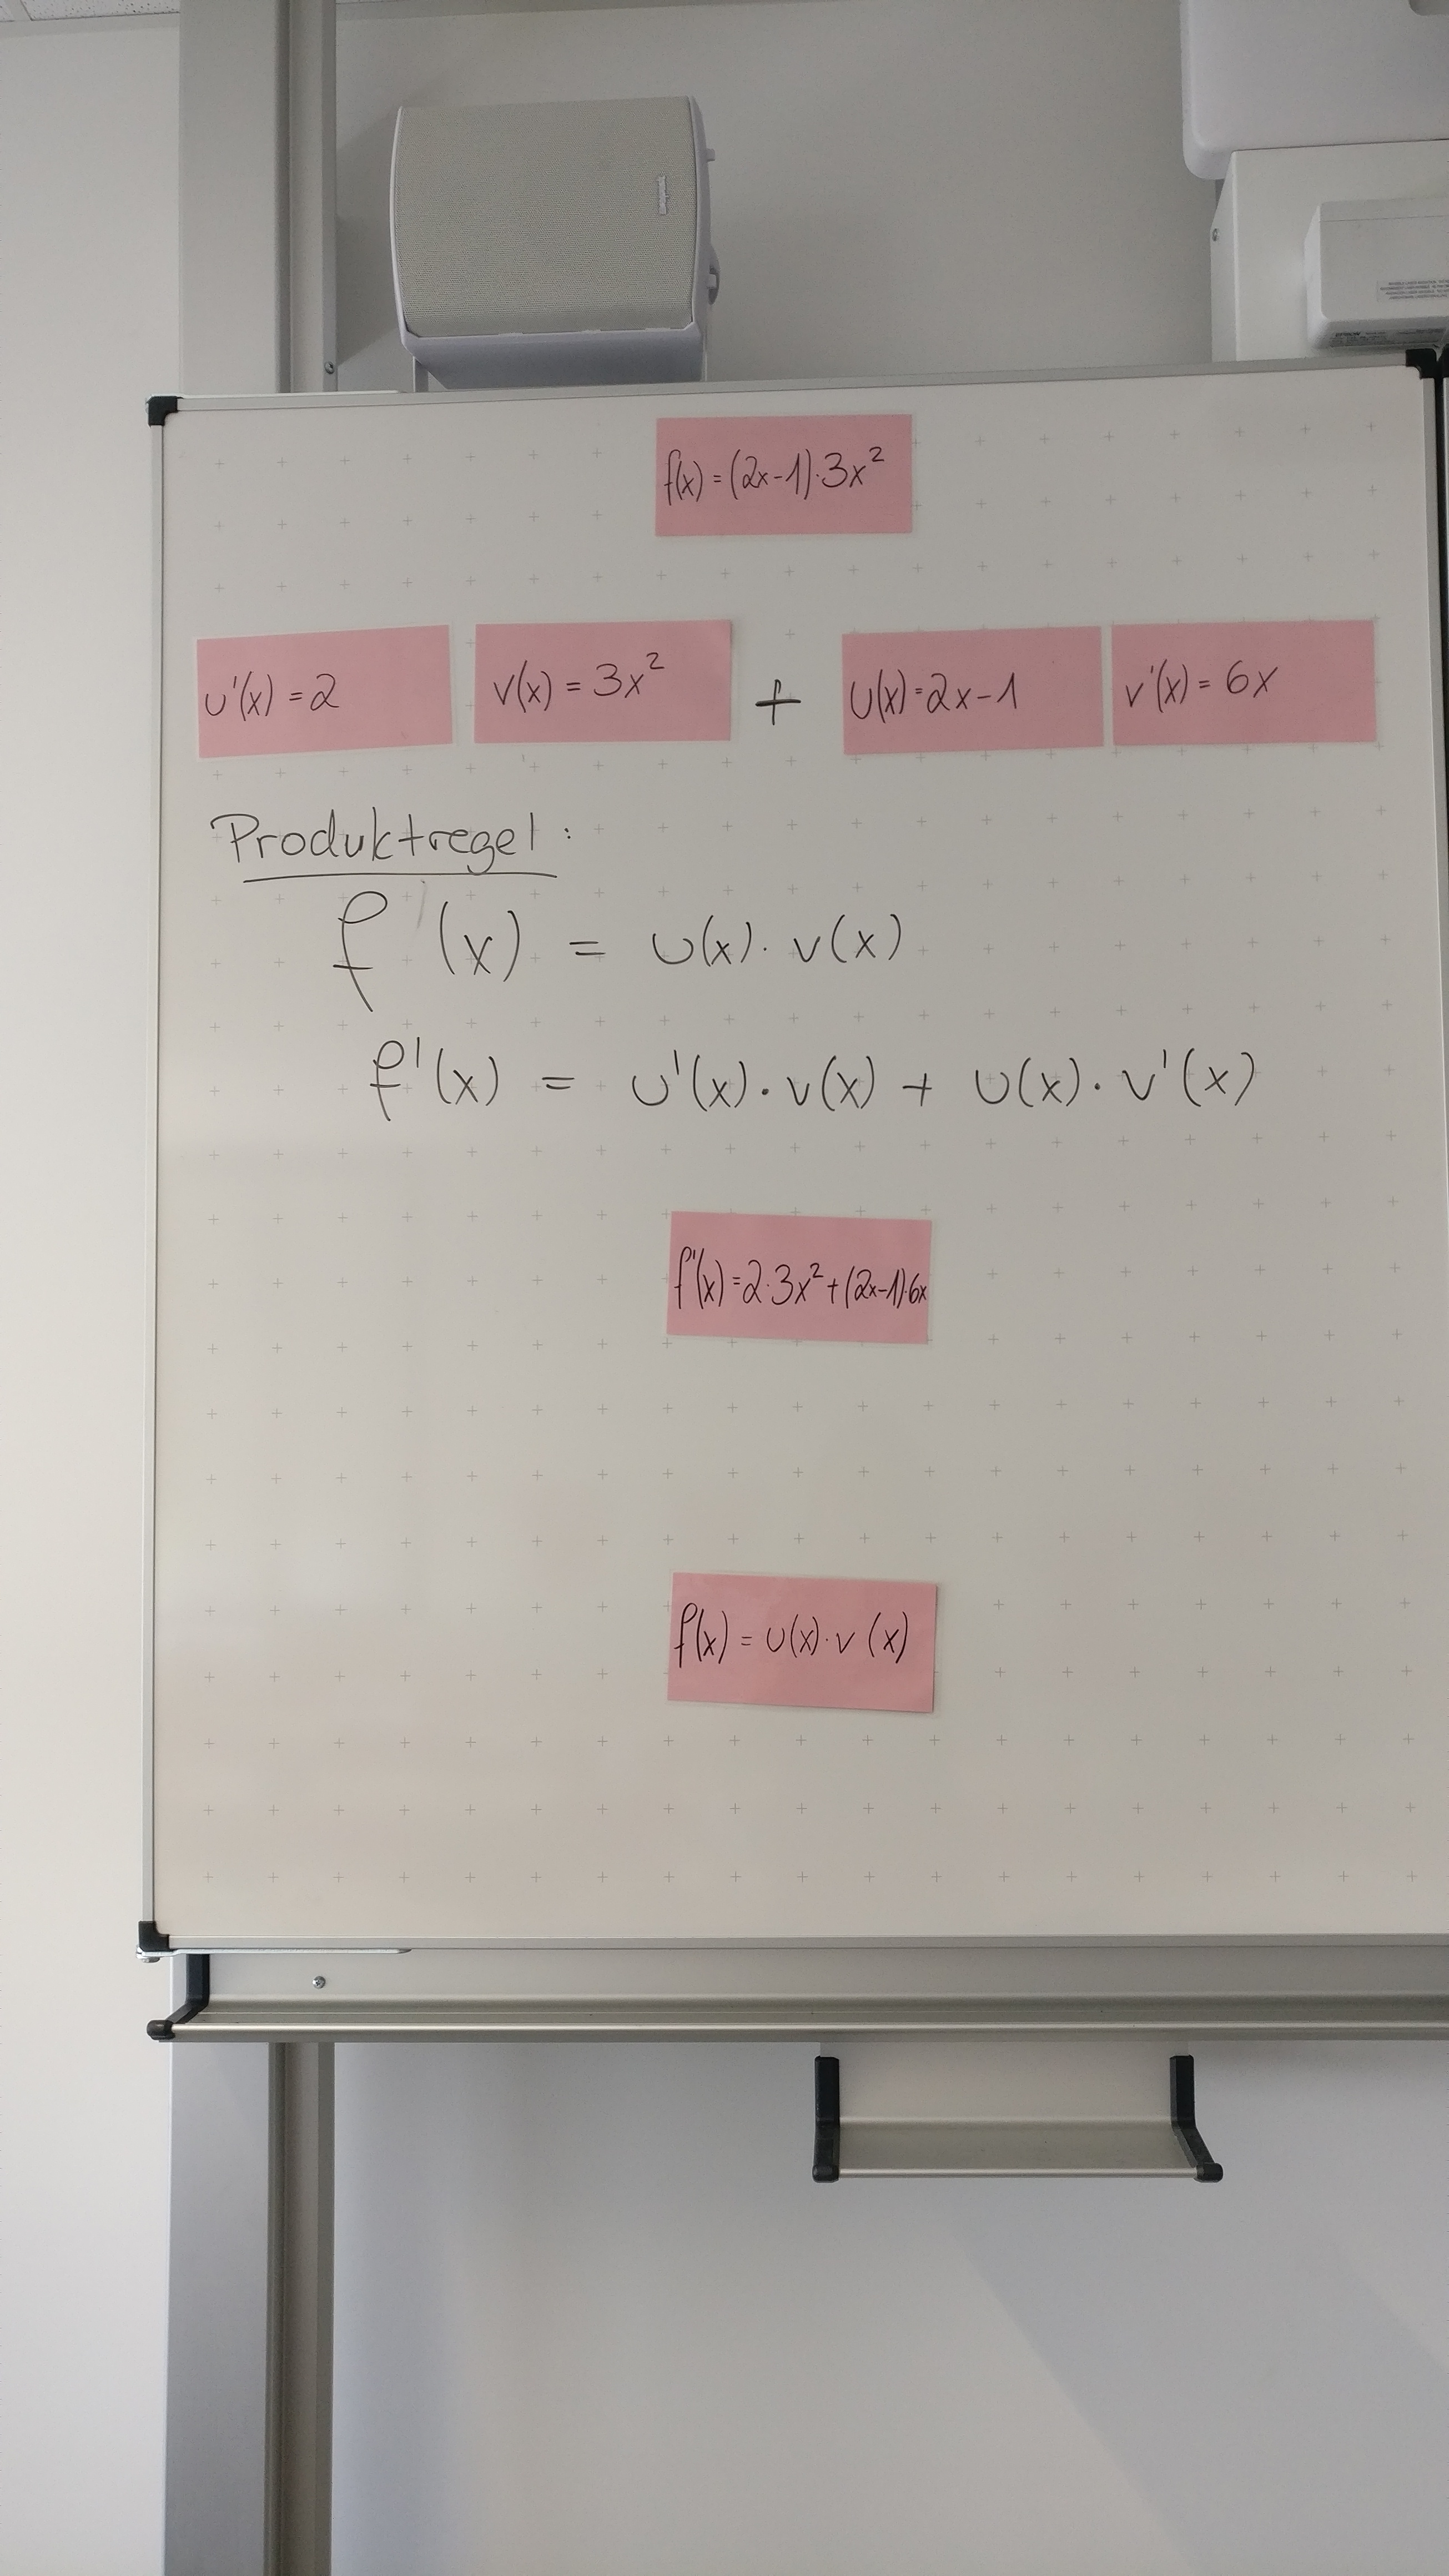 f(x) = (2x-1)·3x²
u'(x) = 2
v(x) = 3x²
+
u(x) = 2x-1
v'(x) = 6x
Produktregel:
f (x) = u(x)· v(x)
f'(x) = u'(x)· v(x) + u(x)· v'(x)
f'(x) = 2·3x²+(2x-1)·6x
f(x) = u(x)· v (x)